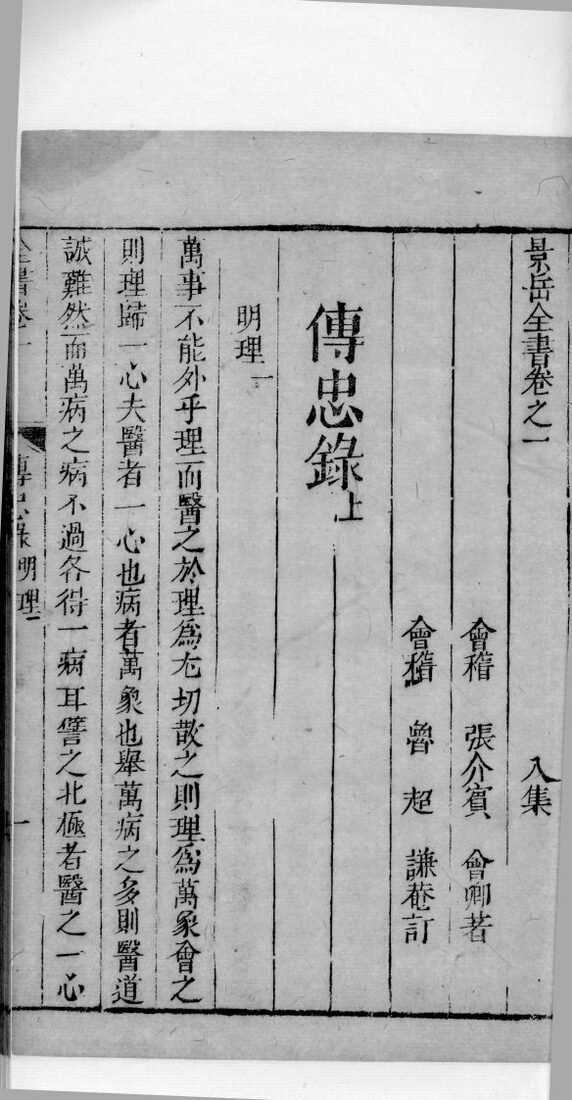 景岳全書卷之一 入集
會稽 張介賓 會卿著
會稽 魯超 謙菴訂
傳忠錄上
明理一
萬事不能外乎理而醫之於理爲尤切散之則理爲萬象會之
則理歸一心夫醫者一心也病者萬象也舉萬病之多則醫道
誠難然而萬病之病不過各得一病耳譬之北極者醫之一心
全書卷一 傳忠錄 明理 一